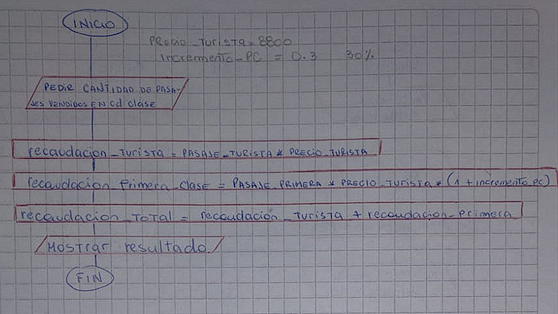 INICIO
PRECIO_TURISTA = 8800
Incremento_PC = 0.3 30%
PEDIR CANTIDAD DE PASA-
JES VENDIDOS EN Cd clase
recaudacion_TURISTA = PASAJE_TURISTA * PRECIO_TURISTA
recaudacion Primera_clase = PASAJE_PRIMERA * PRECIO_TURISTA * (1 + incremento PC)
recaudacion_TOTAL = recaudacion_TURISTA + recaudacion_Primera
Mostrar resultado
FIN